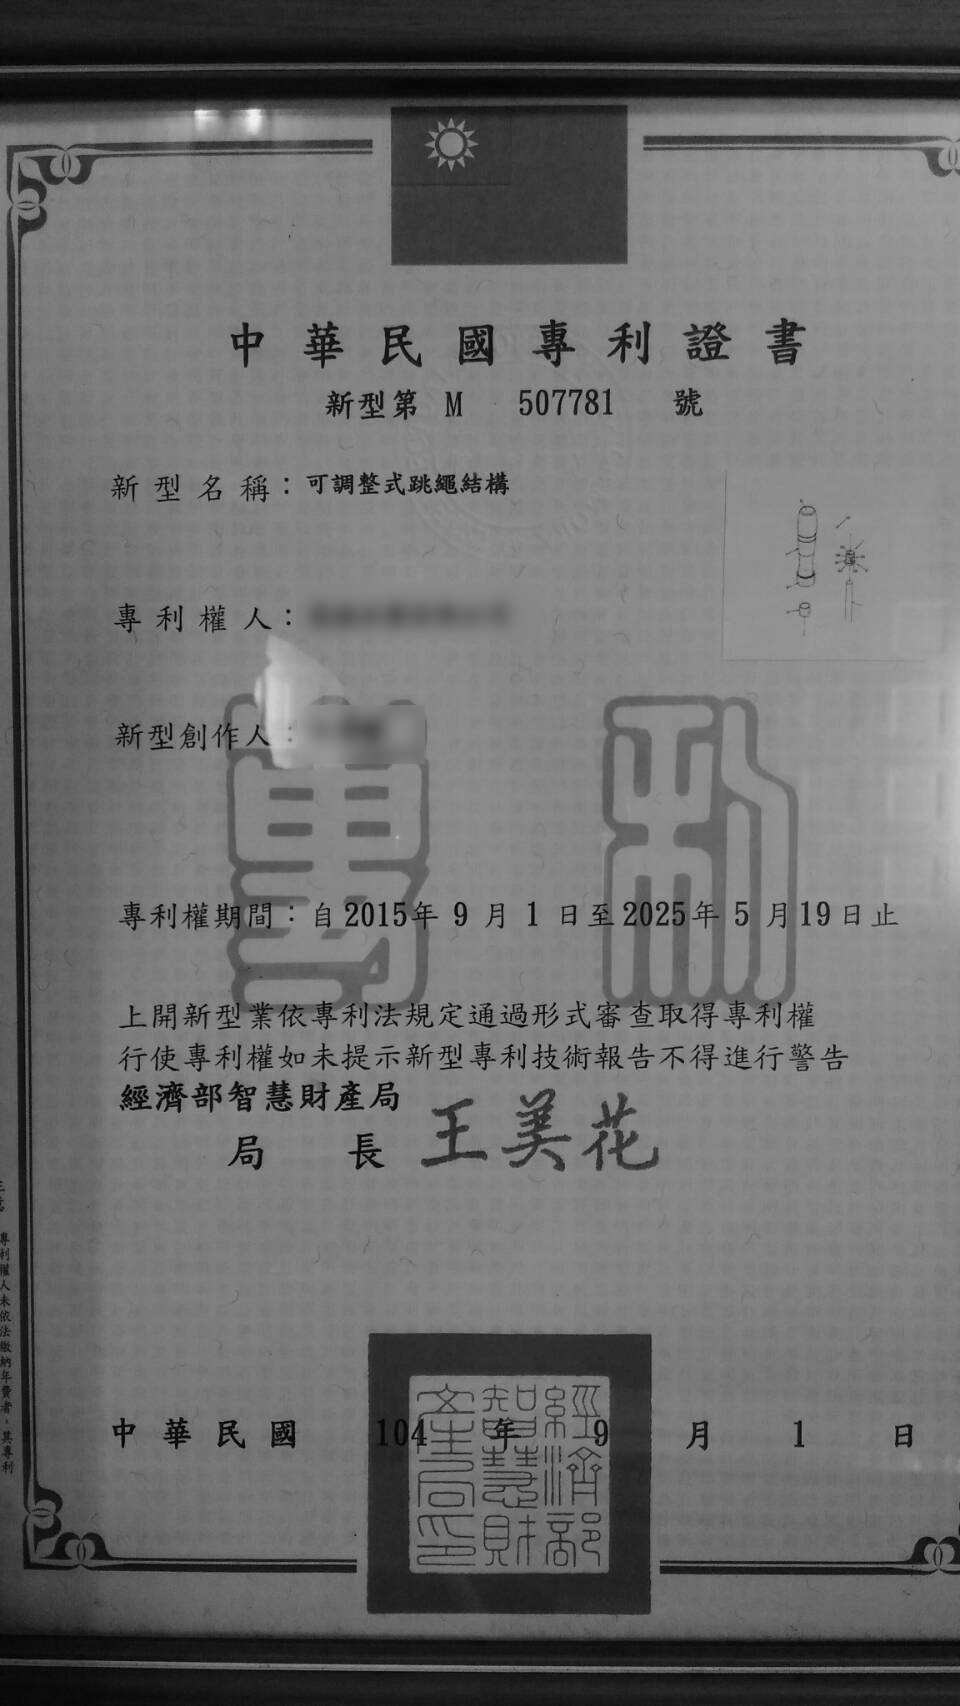 中華民國專利證書
新型第 M 507781 號
新型名稱：可調整式跳繩結構
專利權人：
新型創作人：
專利
專利權期間：自2015年9月1日至2025年5月19日止
上開新型業依專利法規定通過形式審查取得專利權
行使專利權如未提示新型專利技術報告不得進行警告
經濟部智慧財產局
局長 王美花
中華民國 104 年 9 月 1 日
經濟部智慧財產局印
專利權人未依法繳納年費者，其專利